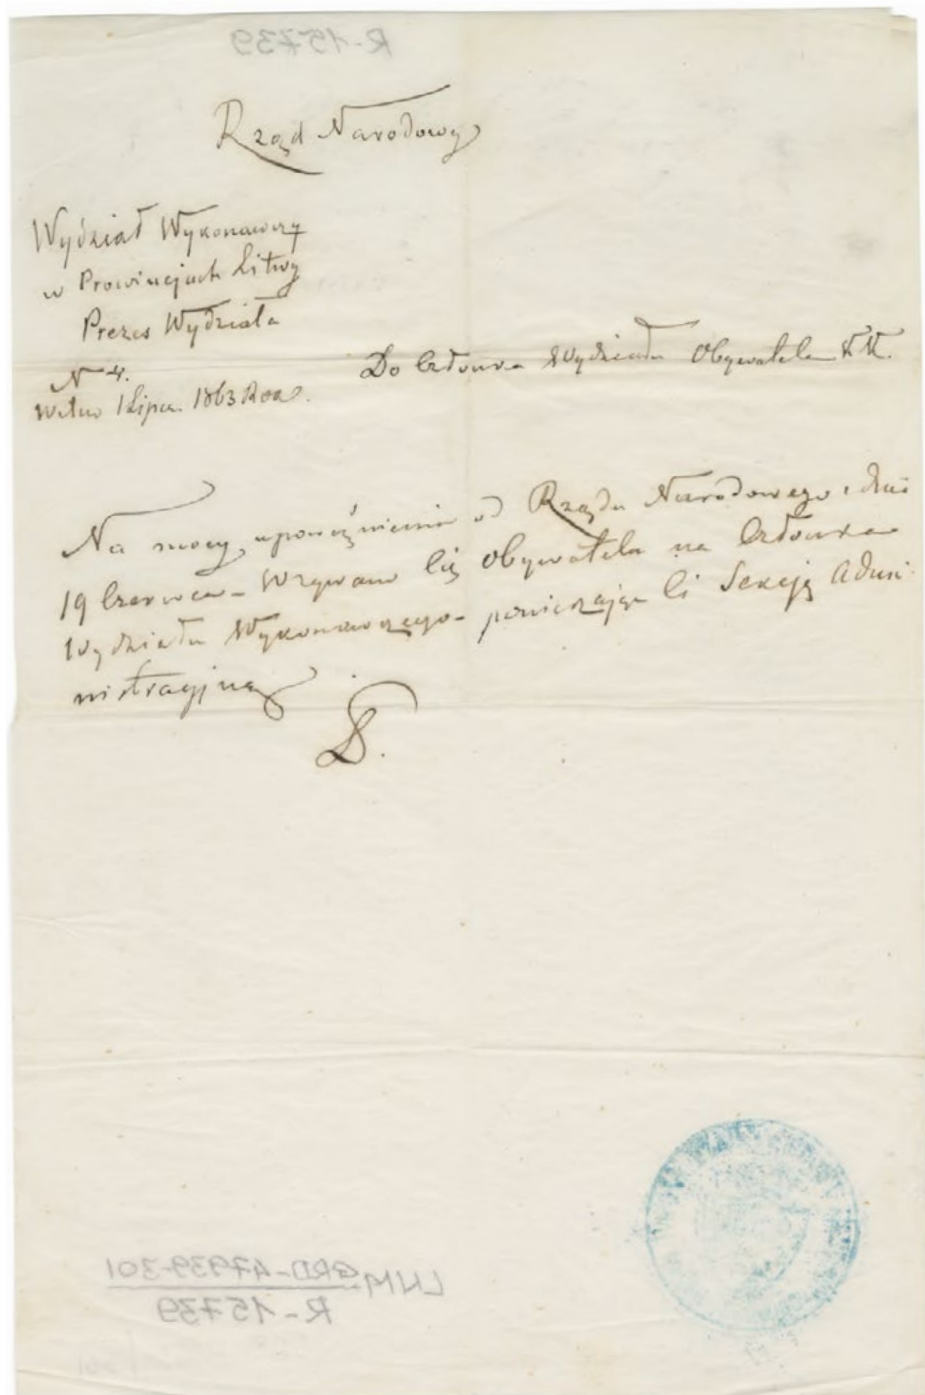 R-15739
Rząd Narodowy
Wydział Wykonawczy
w Prowincjach Litwy
Prezes Wydziału
N 4.
Wilno 1 Lipca 1863 Roku.
Do Członka Wydziału Obywatela
Na mocy upoważnienia od Rządu Narodowego z dnia
19 Czerwca - Wzywam Cię Obywatela na Członka
Wydziału Wykonawczego - powierzając Ci Sekcję Admi-
nistracyjną
LNM GRD-47939-301
R-15739